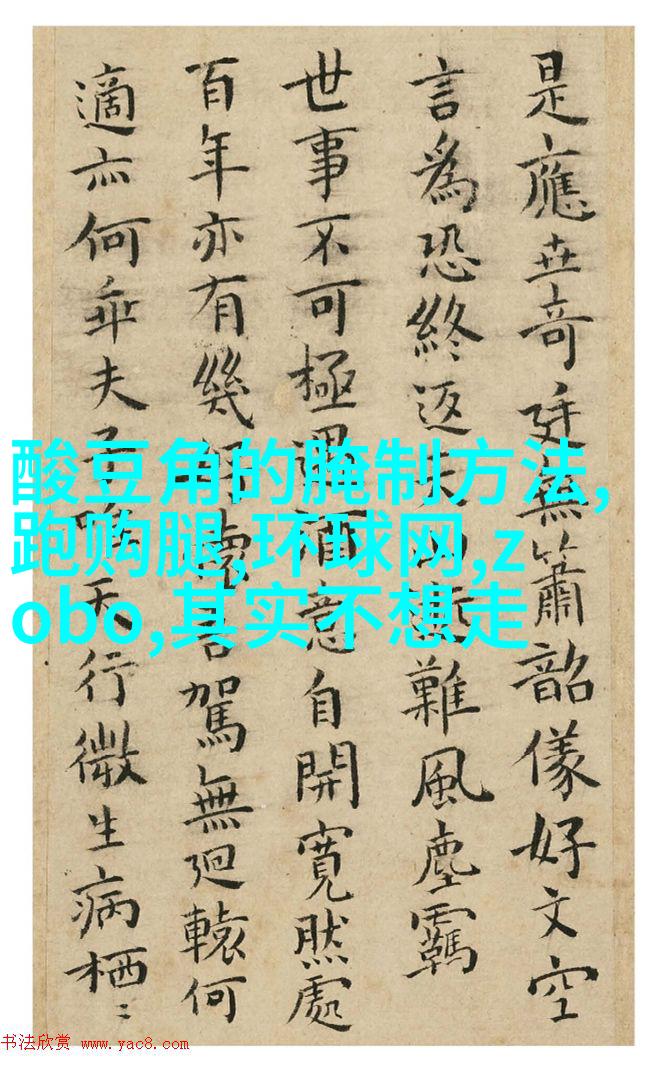 是應世奇廷無簫韶儀好文空
言爲恐終返難風塵羈
世事不可極遇酒意自開寬然處
百年亦有幾言駕無迴轅何
適亦何乖夫子天行微生病栖〻
酸豆角的腌制方法,
跑购腿,环球网,z
obo,其实不想走
书法欣赏 www.yac8.com